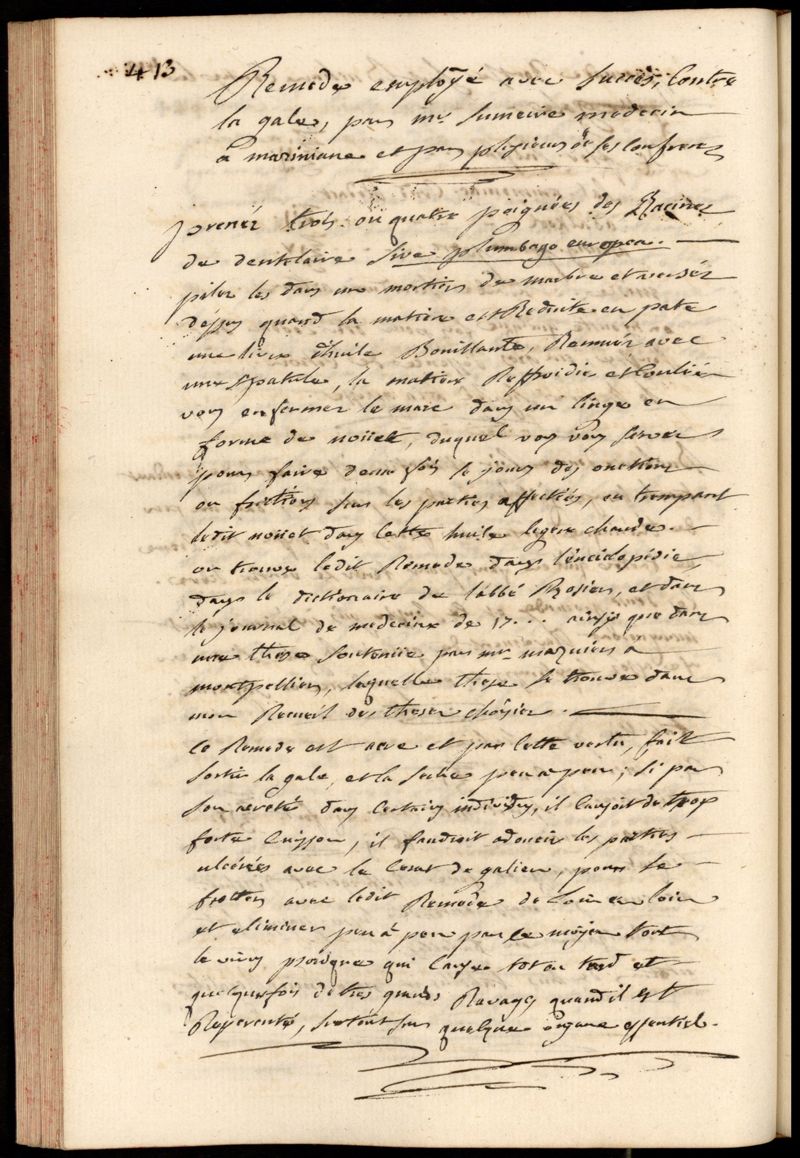 413
Remede employé avec succès, contre
la gale, par mr sumeire medecin
a mariniane et par plusieurs de ses confreres
prenés trois ou quatre poignées des Racines
de dentelaire sive plumbago europea.
piler les dans un mortier de marbre et versés
dessus quand la matiere est Reduite en pate
une livre d'huile Bouillante, Remuer avec
une spatule, la matiere Reffroidie et Coulée
vous enfermer le marc dans un linge en
forme de noüet, duquel vous vous servés
pour faire deux fois le jour des onctions
ou frictions sur les parties affectées, en trempant
ledit noüet dans cette huile legere chaude.
on trouve ledit Remede dans l'enciclopédie,
dans le dictionaire de l'abbé Rosier, et dans
le journal de medecine de 17... ainsi que dans
une these soutenüe par mr
montpellier, laquelle these se trouve dans
mon Recueil des theses choisies.
Ce Remede est acre et par cette vertu, fait
sortir la gale, et la seche peu a peu; si par
son acreté dans certains individus, il causoit de trop
forte Cuisson, il faudroit adoucir les parties
ulcérées avec le Cerat de galien, pour se
frotter avec ledit Remede de loin en loin
et eliminer peu à peu par ce moyen tout
le virus psorique qui cause tot ou tard et
quelquefois de tres grands Ravages quand il est
Repercuté, surtout sur quelque organe essentiel.